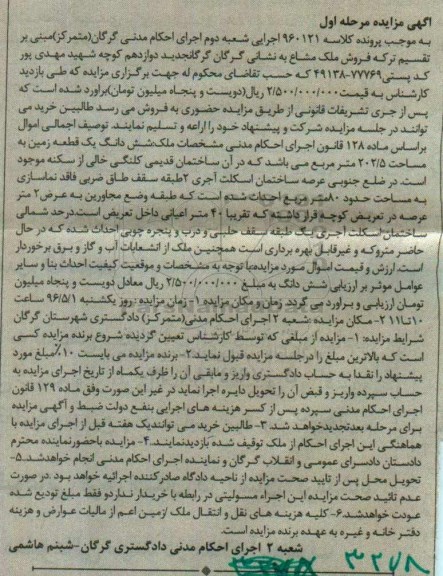 آگهی مزایده مرحله اول
به موجب پرونده کلاسه ۹۶۰۱۲۱ اجرایی شعبه دوم اجرای احکام مدنی گرگان(متمرکز)مبنی بر
تقسیم ترکه فروش ملک مشاع به نشانی گرگان گرگانجدید دوازدهم کوچه شهید مهدی پور
کد پستی۷۷۷۶۹-۴۹۱۳۸ که حسب تقاضای محکوم له جهت برگزاری مزایده که طی بازدید
کارشناس به قیمت۲/۵۰۰/۰۰۰/۰۰۰ ریال(دویست و پنجاه میلیون تومان)براورد شده است که
پس از جری تشریفات قانونی از طریق مزایده حضوری به فروش می رسد طالبین خرید می
توانند در جلسه مزایده شرکت و پیشنهاد خود را اراعه و تسلیم نمایند. توصیف اجمالی اموال
براساس ماده ۱۲۸ قانون اجرای احکام مدنی مشخصات ملک:شش دانگ یک قطعه زمین به
مساحت ۲۰۲/۵ متر مربع می باشد که در آن ساختمان قدیمی کلنگی خالی از سکنه موجود
است. در ضلع جنوبی عرصه ساختمان اسکلت آجری ۲طبقه سقف طاق ضربی فاقد نماسازی
به مساحت حدود ۸۰متر مربع احداث شده است که طبقه وضع مجاورین به عرض۲ متر
عرصه در تعریض کوچه قرار داشته که تقریبا ۴۰ متر اعیانی داخل تعریض است.درحد شمالی
ساختمان اسکلت آجری یک طبقه سقف حلبی و درب و پنجره چوبی احداث شده که در حال
حاضر متروکه و غیرقابل بهره برداری است همچنین ملک از انشعابات آب و گاز و برق برخوردار
است.ارزش و قیمت اموال مورد مزایده با توجه به مشخصات و موقعیت کیفیت احداث بنا و سایر
عوامل موثر بر ارزیابی شش دانگ به مبلغ ۲/۵۰۰/۰۰۰/۰۰۰ ریال معادل دویست و پنجاه میلیون
تومان ارزیابی و براورد می گردد. زمان و مکان مزایده ۱-زمان مزایده : روز یکشنبه ۹۶/۵/۱ ساعت
۱۰تا۱۱ ۲-مکان مزایده :شعبه ۲ اجرای احکام مدنی(متمرکز) دادگستری شهرستان گرگان
شرایط مزایده: ۱- مزایده از مبلغی که توسط کارشناس تعیین گردیده شروع برنده مزایده کسی
است که بالاترین مبلغ را درجلسه مزایده قبول نماید.۲- برنده مزایده می بایست ۱۰٪مبلغ مورد
پیشنهاد را نقدا به حساب دادگستری واریز و مابقی آن را ظرف یکماه از تاریخ اجرای مزایده به
حساب سپرده واریز و قبض آن را تحویل دایره اجرا نماید در غیر این صورت وفق ماده ۱۲۹ قانون
اجرای احکام مدنی سپرده پس از کسر هزینه های اجرایی بنفع دولت ضبط و آگهی مزایده
برای مرحله بعدتجدیدخواهد شد. ۳-طالبین خرید می توانندیک هفته قبل از اجرای مزایده با
هماهنگی این اجرای احکام از ملک توقیف شده بازدیدنمایند. ۴- مزایده باحضورنماینده محترم
دادستان دادسرای عمومی و انقلاب گرگان و نماینده اجرای احکام مدنی انجام خواهدشد.۵-
تحویل محل پس از تایید صحت مزایده از ناحیه دادگاه صادرکننده اجرائیه خواهد بود .در صورت
عدم تائید صحت مزایده این اجراء مسولیتی در رابطه با خریدار نداردو فقط مبلغ تودیع شده
عودت خواهدشد.۶-کلیه هزینه های نقل و انتقال ملک /زمین اعم از مالیات عوارض و هزینه
دفتر خانه و غیره به عهده برنده مزایده است.
شعبه ۲ اجرای احکام مدنی دادگستری گرگان-شبنم هاشمی
۳۲۷۸